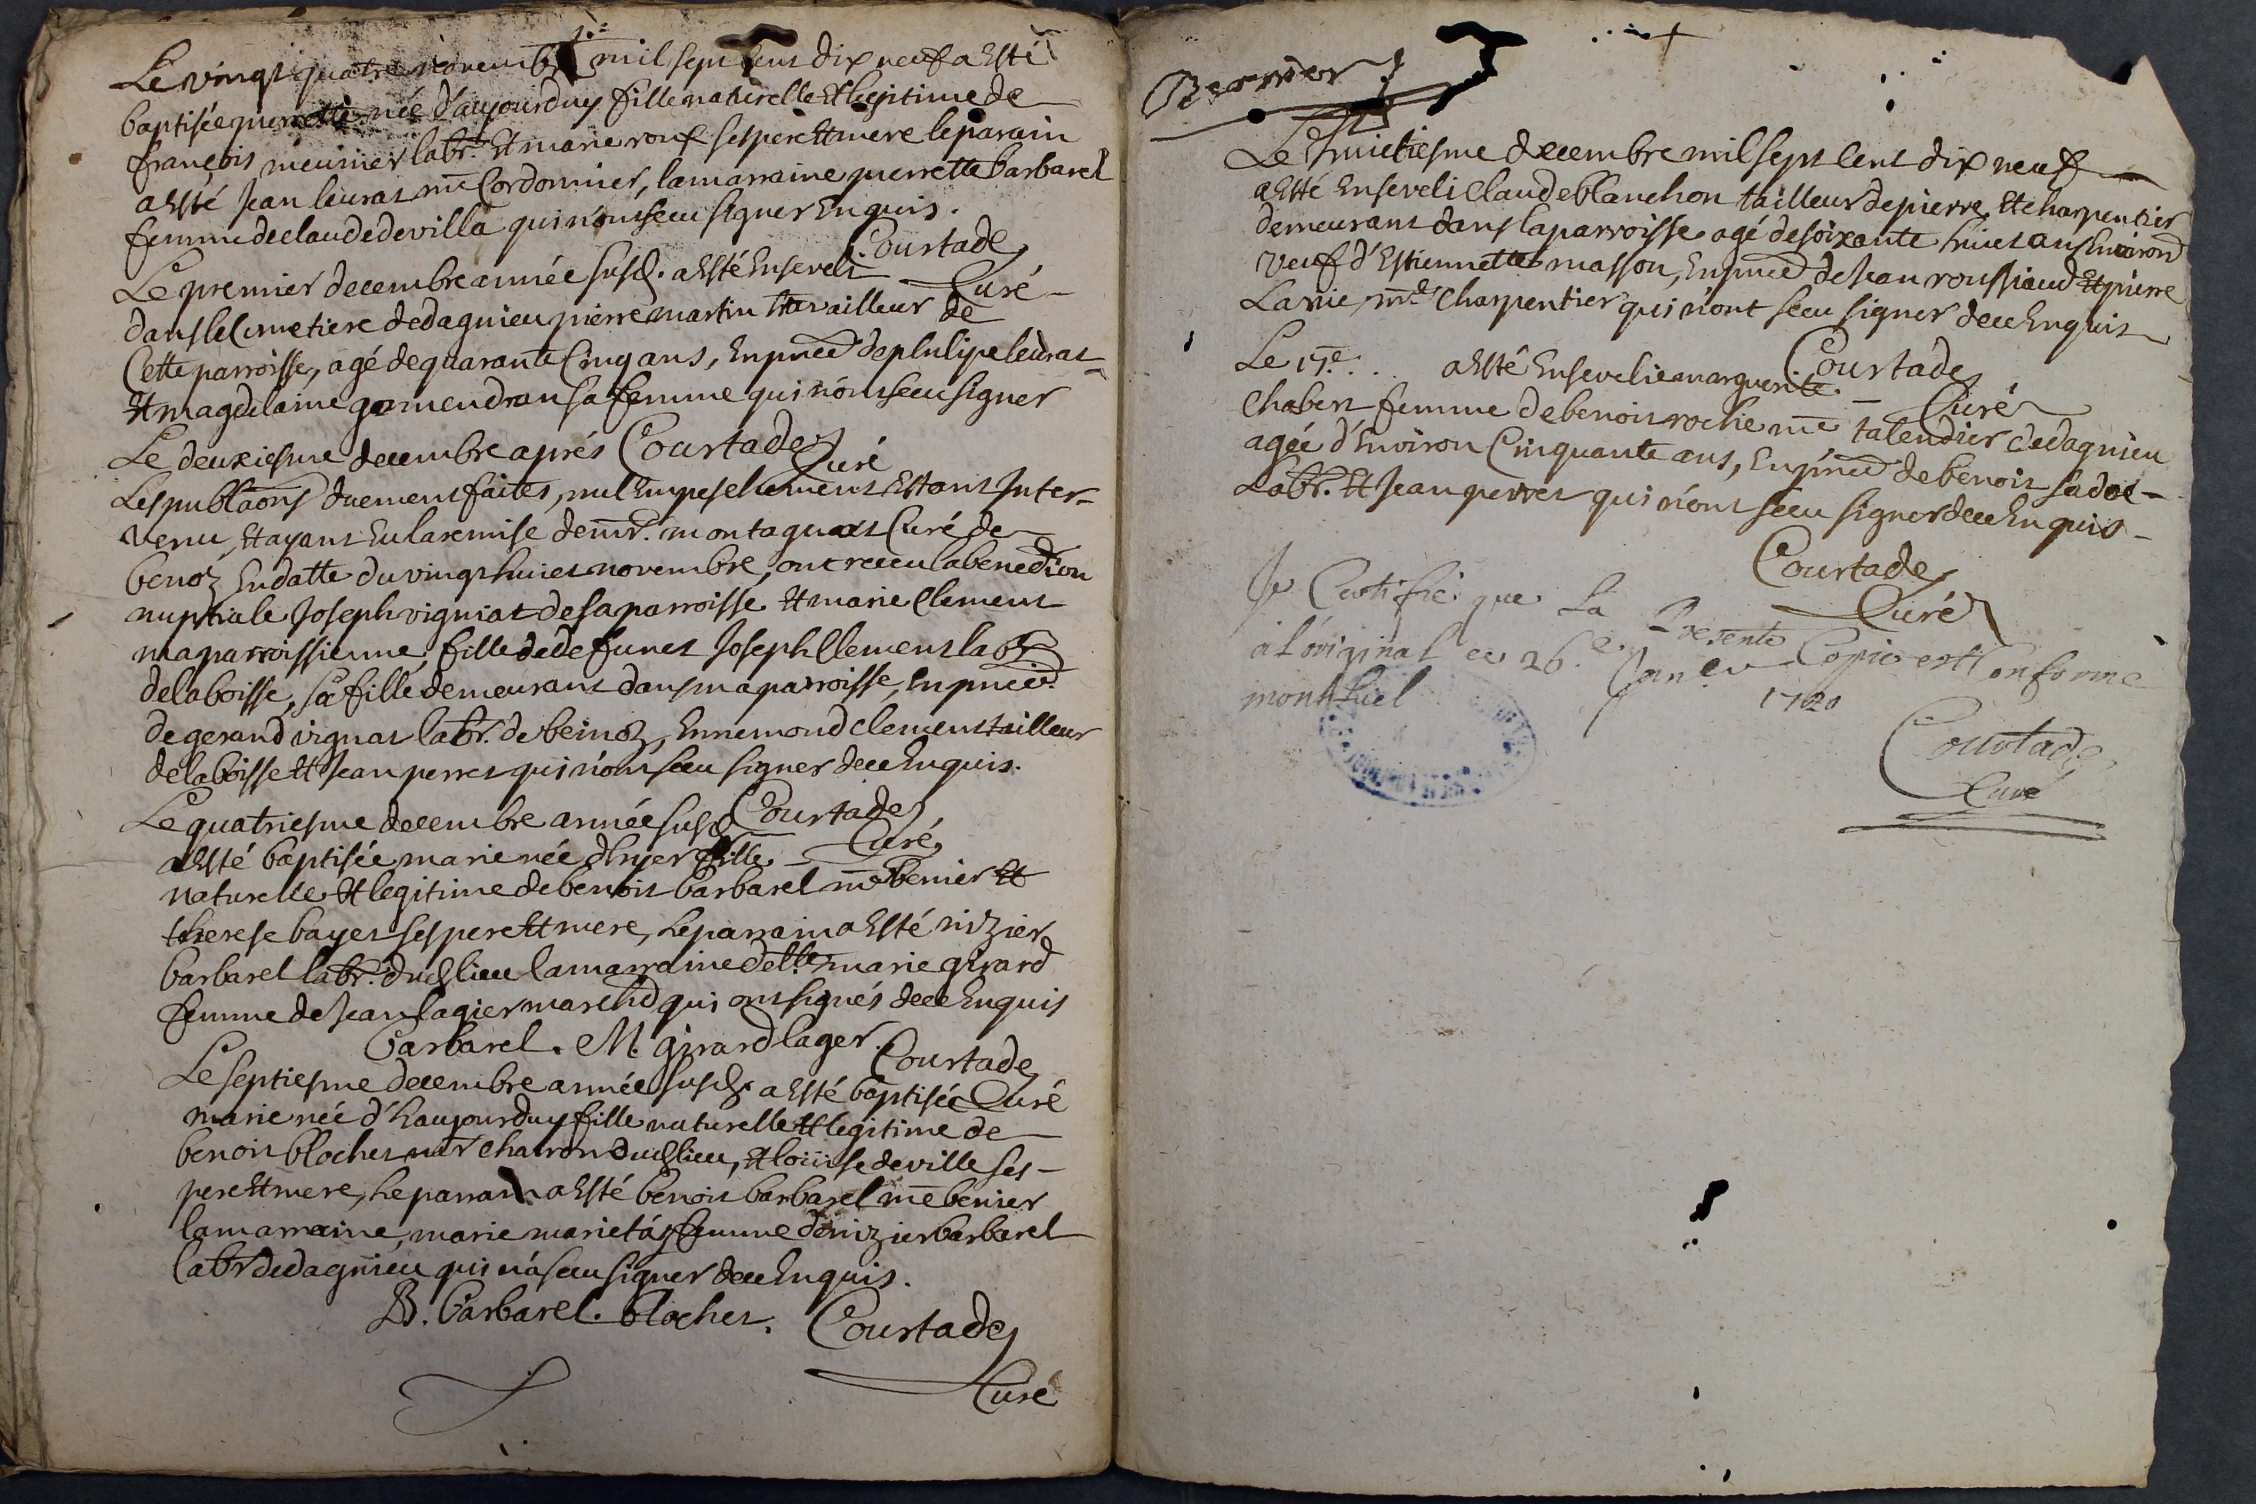 Le vingt quatre novembre mil sept cent dix neuf a Esté
baptisée pierrette née d'aujourduy fille naturelle Et legitime de
françois meunier labr. Et marie rouf ses pere Et mere le parain
a Esté Jean leurat me Cordonnier, la marraine pierrette barbarel
femme de claude devilla qui n'ont sceu signer Enquis.
Courtade
Curé
Le premier decembre année susd. a Esté Enseveli
dans le Cimetiere de dagnieu pierre martin travailleur de
Cette parroisse, agé de quarante Cinq ans, En pnce de philipe leurat
Et magdelaine gomendran sa femme qui n'ont sceu signer
Courtade
Curé
Le deuxiesme decembre aprés
Les publãons duement faites, nul Empeschement Estant Inter-
venu, Et ayant Eu la remise de mr. montagnat Curé de
benoz En datte du vingt huict novembre, ont receu la benedion
nuptiale Joseph vigniat de sa parroisse Et marie Clement
ma parroissienne, fille de defunct Joseph Clement labr
de la boisse, sa fille demeurant dans ma parroisse, En pnce
de gerand vignat labr. de beinoz, Ennemond clement tailleur
de la boisse Et Jean perret qui n'ont sceu signer de ce Enquis.
Courtade
Curé
Le quatriesme decembre année susd
a Esté baptisée marie née d'hyer fille
naturelle Et legitime de benoit barbarel me benier Et
therese bayet ses pere Et mere, le parrain a Esté nizier
barbarel labr. dud lieu la marraine delle marie girard
femme de Jean lagier marchd qui ont signés de ce Enquis
barbarel. M. girard lager.
Courtade
Curé
Le septiesme decembre année susd. a Esté baptisée
marie née d'haujourduy fille naturelle Et legitime de
benoit blochet mtr charron dud lieu, Et loüise deville ses
pere Et mere, le parrain a Esté benoit barbarel me benier
la marraine, marie marietás femme de nizier barbarel
labr de dagnieu qui n'a sceu signer de ce Enquis.
B. barbarel. blochet. Courtade
Curé
Le huictiesme decembre mil sept cent dix neuf
a Esté Enseveli Claude blanchon tailleur de pierre, Et charpentier
demeurant dans la parroisse agé de soixante huict ans Environ
veuf d'Estiennette masson, En pnce de Jean roussiaud Et pierre
Lavie, md Charpentier qui n'ont sceu signer de ce Enquis
Courtade
Curé
Le 17e... a Esté Ensevelie marguerite
Chabert femme de benoit roche me talendier de dagnieu
agée d'Environ Cinquante ans, En pnce de benoit sadoé
Labr. Et Jean perret qui n'ont sceu signer de ce Enquis
Courtade
Curé
Je Certifie que La Presente Copie est Conforme
a l'original ce 26e Janer 1720
montluel
Courtade
Curé